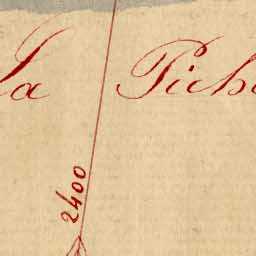 La Pich
2400